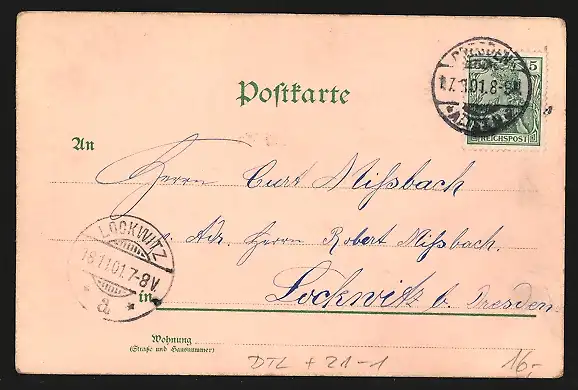 DRESDEN
17.11.01.8-9N.
* ALTST. *
5
REICHSPOST
Postkarte
An
Herrn Curt Mißbach
Adr. Herrn Robert Mißbach.
LOCKWITZ
18.11.01.7-8V.
* a *
in Lockwitz b. Dresden
Wohnung
(Straße und Hausnummer)
DTL + 21-1
16,-